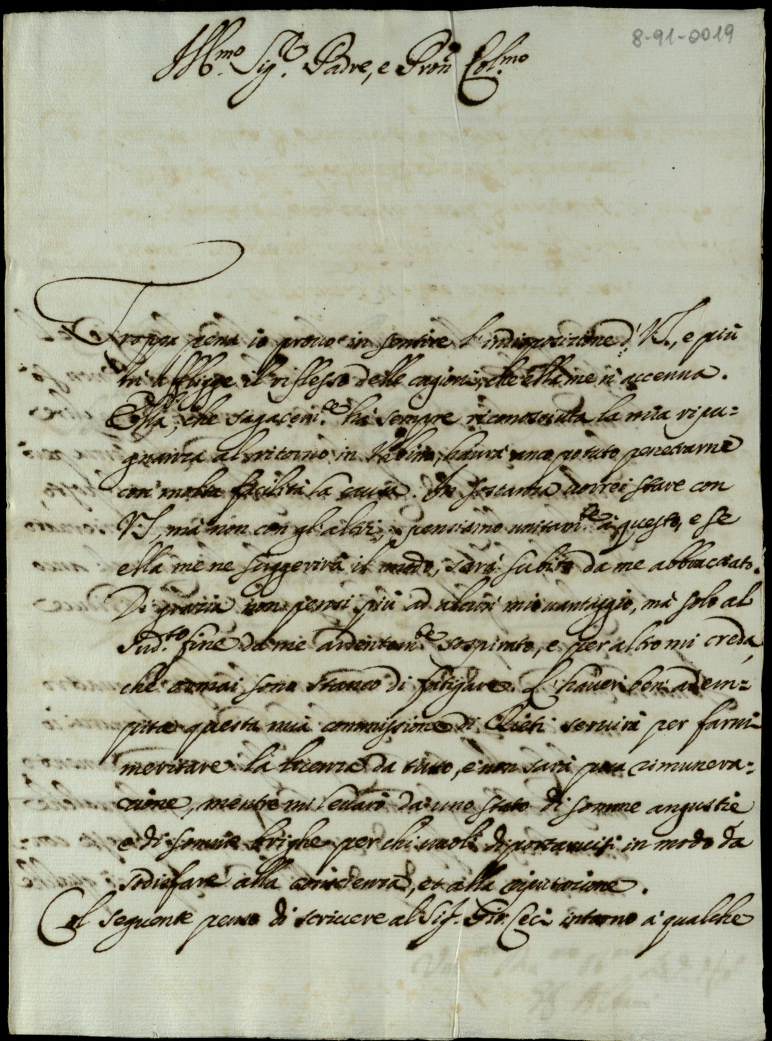 8-91-0019
Ill.mo Sig.r Padre, e Pron Col.mo
Troppa pena io provo in sentire l'indisposizione di V.S., e più
mi affligge il riflesso delle cagioni, che ella me n'accenna.
Ella, che sagacem.te hà sempre riconosciuta la mia ripu=
gnanza al ritorno in Urbino, haurà anco potuto penetrarne
con molta facilità la causa. In sostanza vorrei stare con
V.S., mà non con gl'altri, pensiamo unitam.te à questo, e se
ella me ne suggerirà il modo, sarà subito da me abbracciato.
Di grazia non pensi più ad alcun mio vantaggio, mà solo al
sud.to fine da me ardentem.te sospirato, e per altro mi creda,
che ormai sono stanco di fatigare. L'haver ben adem=
pita questa mia commissione di Chieti servirà per farmi
meritare la licenza da tutto, e non sarà poca rimunera=
zione, mentre mi levarò da uno stato di somme angustie
e di somme brighe per chi vuole diportarvisi in modo da
sodisfare alla coscienza, et alla riputazione.
Il seguente penso di scrivere al Sig. Gio. Ceci intorno à qualche